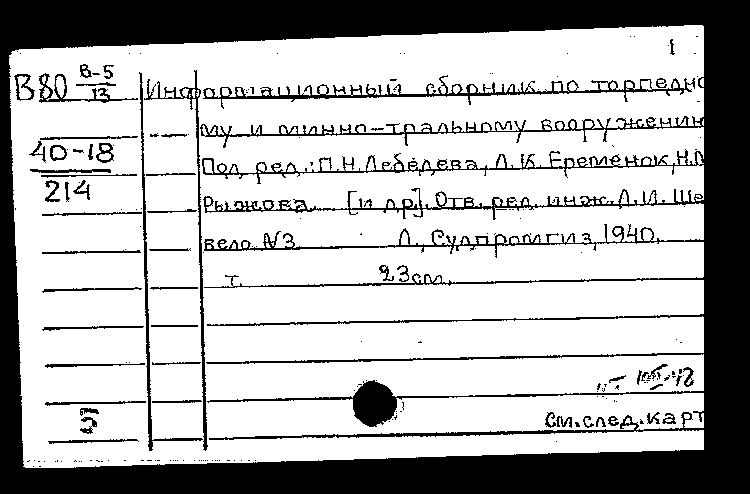 1
В80 В-5/13 Информационный сборник по торпедно
му и минно-тральному вооружению
40-18
214
Под ред.: П.Н. Лебедева, Л.К. Еременок, Н.
Рыжкова [и др]. Отв. ред. инж. Л.И. Ше
вело №3 Л., Судпромгиз, 1940.
т. 23см.
5
см. след. карт